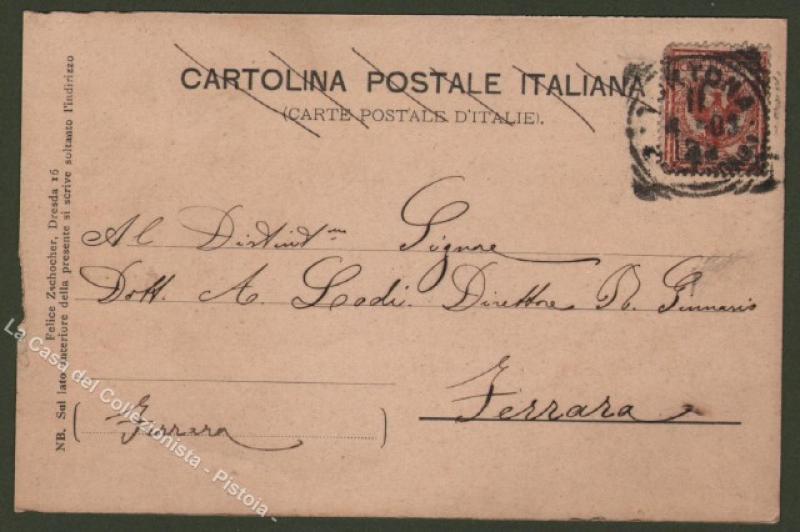 CARTOLINA POSTALE ITALIANA
(CARTE POSTALE D'ITALIE).
Al Distint.mo Signore
Dott. A. Lodi. Direttore R. Ginnasio
Ferrara
(Ferrara)
Felice Zschocher, Dresda 16
NB. Sul lato anteriore della presente si scrive soltanto l'indirizzo
La Casa del Collezionista - Pistoia -